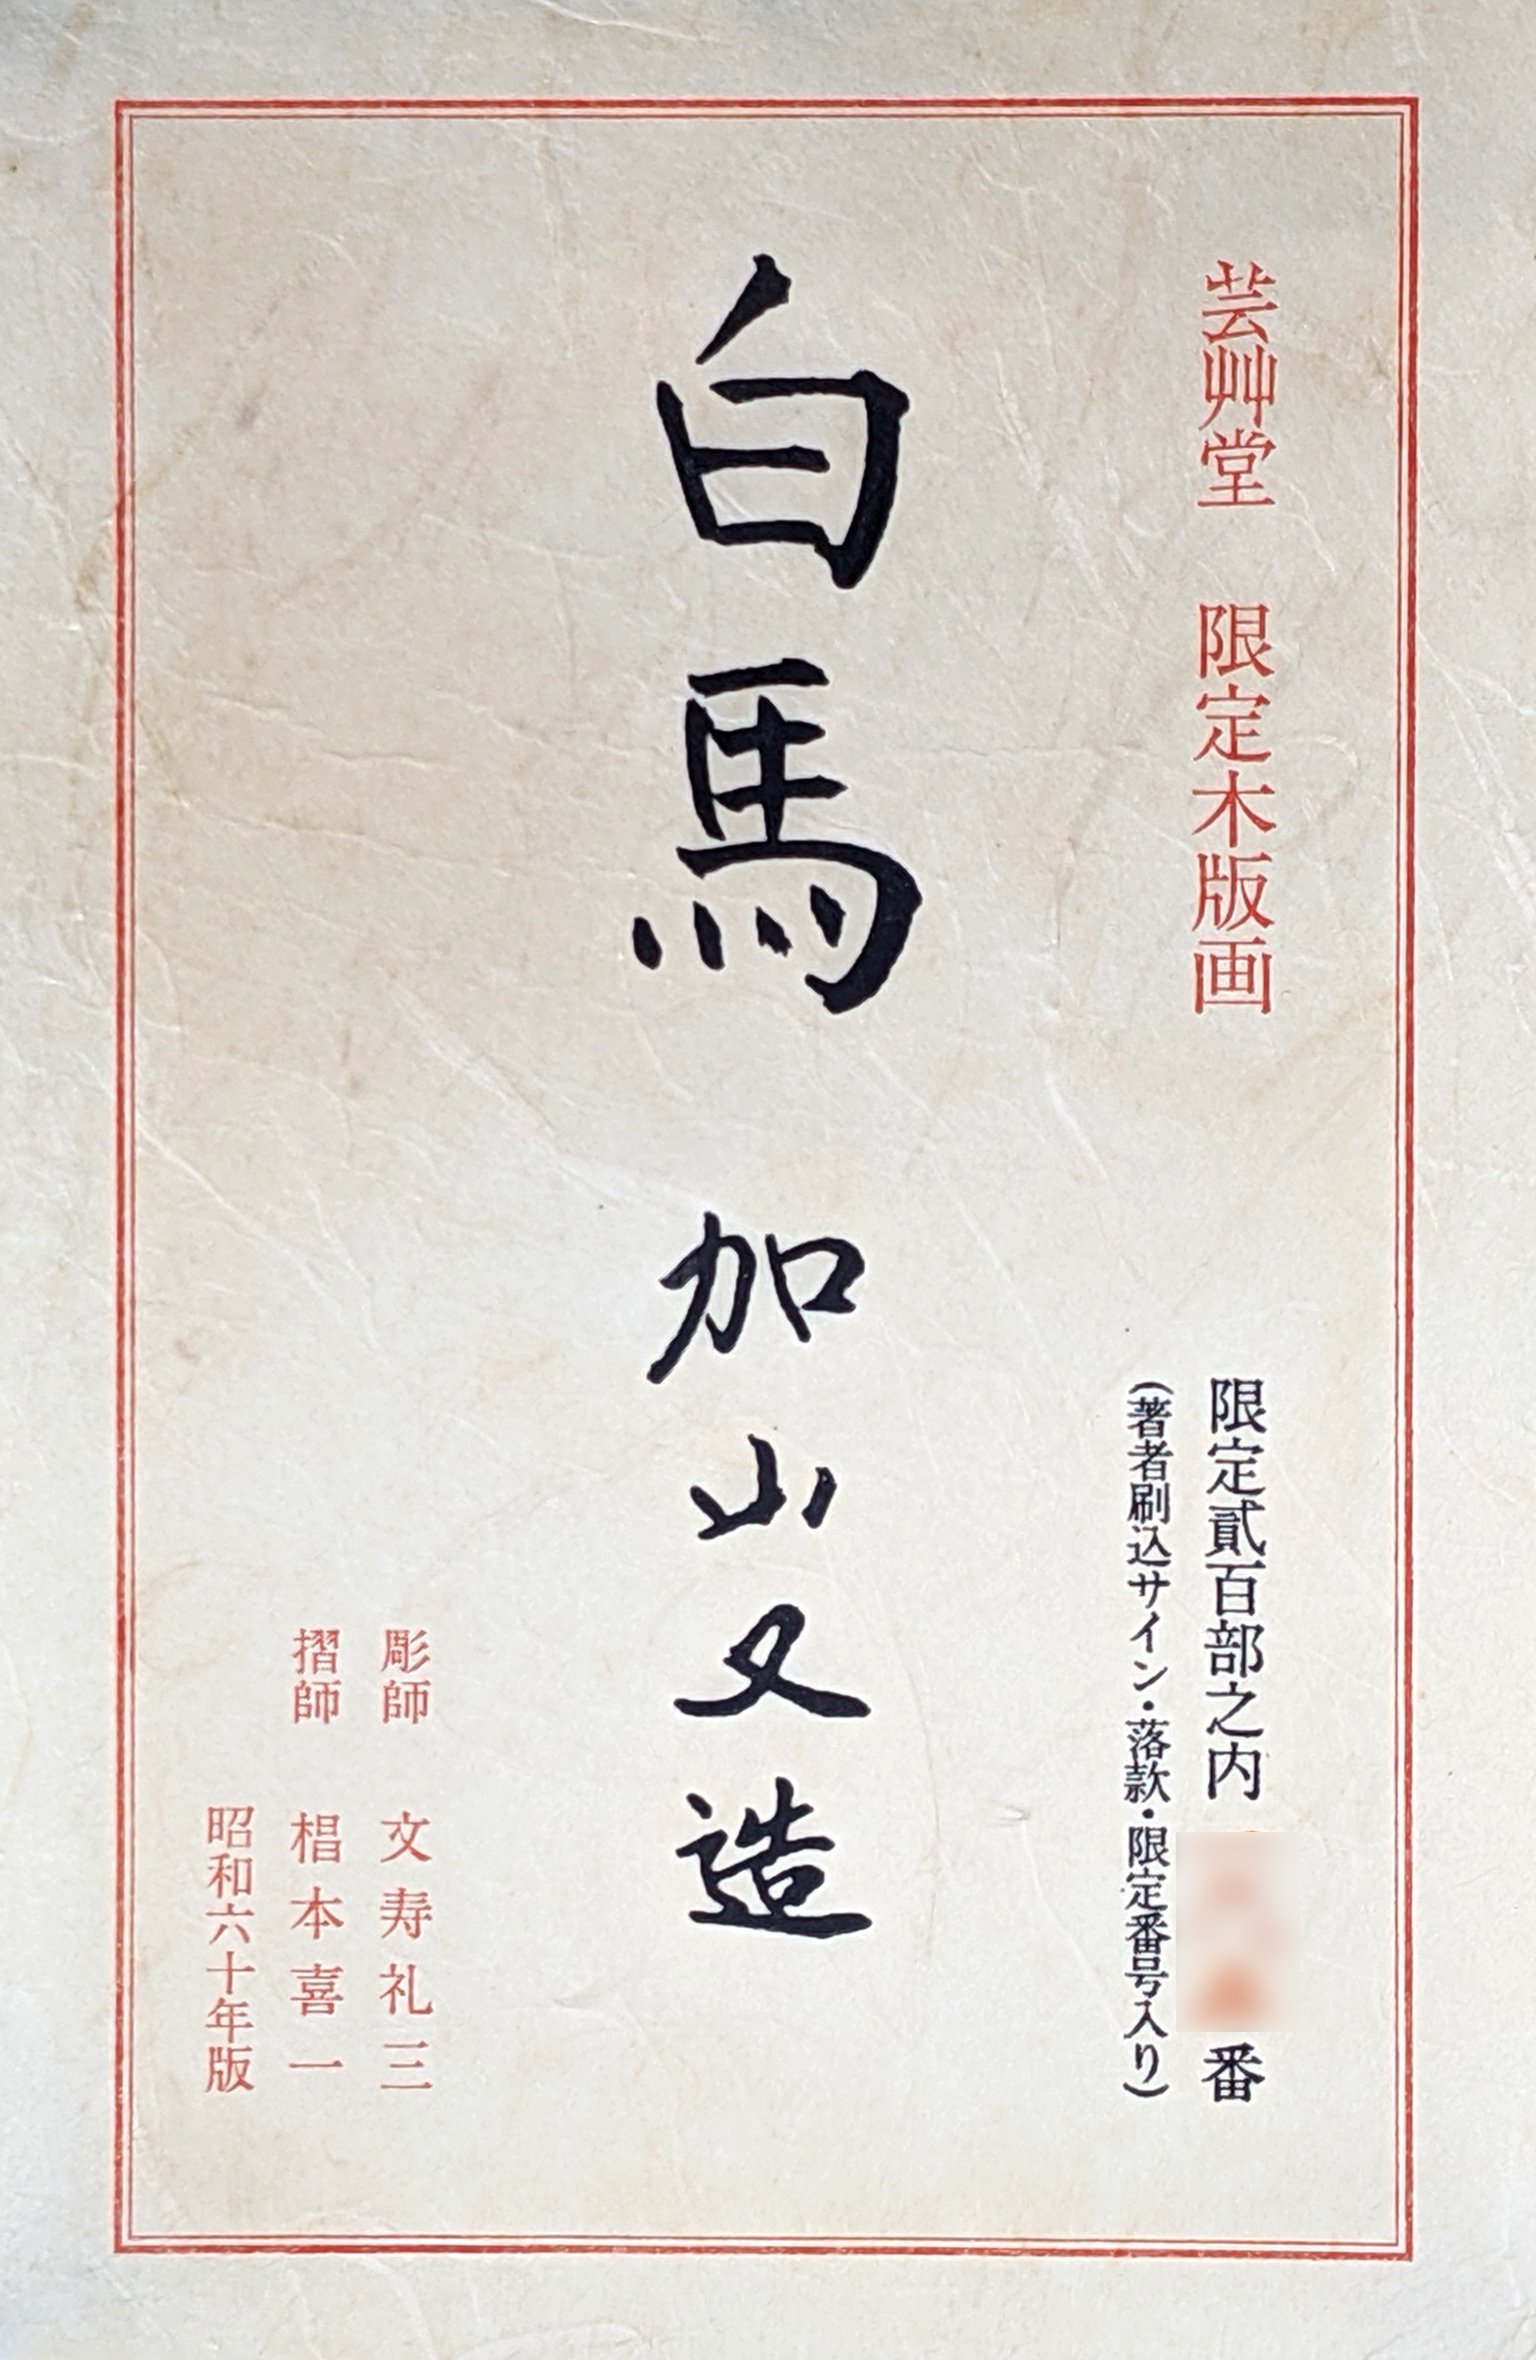 芸艸堂　限定木版画
限定貳百部之内　番
（著者刷込サイン・落款・限定番号入り）
白馬　加山又造
彫師　文寿礼三
摺師　椙本喜一
昭和六十年版